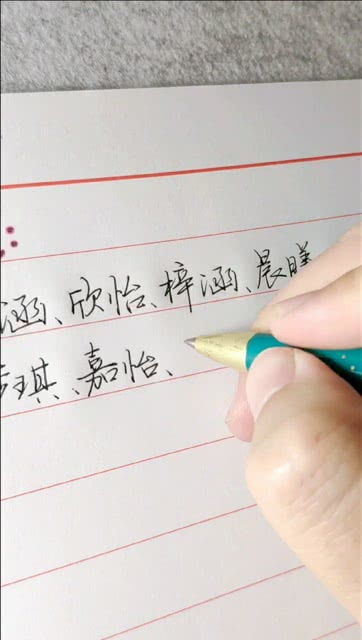 涵、欣怡、梓涵、晨曦
琪、嘉怡、